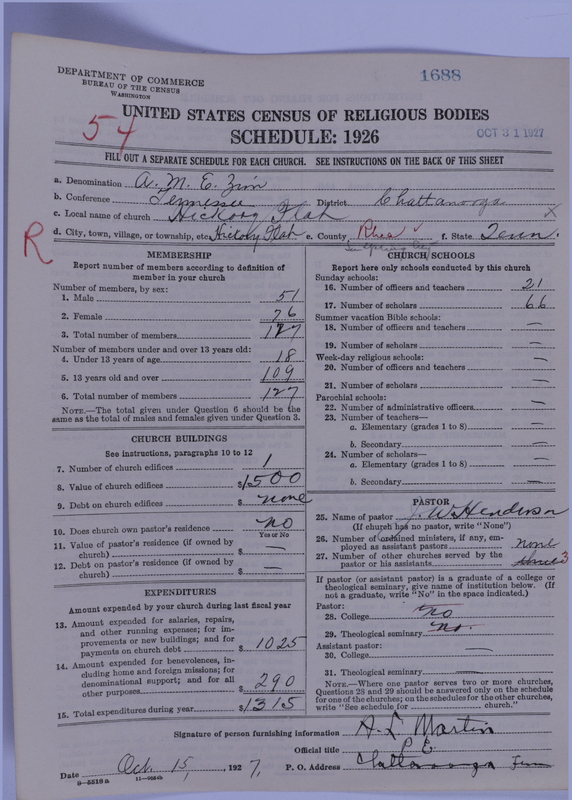 DEPARTMENT OF COMMERCE
BUREAU OF THE CENSUS
WASHINGTON
1688
54
UNITED STATES CENSUS OF RELIGIOUS BODIES
SCHEDULE: 1926
OCT 31 1927
FILL OUT A SEPARATE SCHEDULE FOR EACH CHURCH. SEE INSTRUCTIONS ON THE BACK OF THIS SHEET
a. Denomination A. M. E. Zion
b. Conference Tennessee District Chattanooga
c. Local name of church Hickory Flat X
R
d. City, town, village, or township, etc. Hickory Flat e. County Rhea ✓ f. State Tenn.
MEMBERSHIP
Report number of members according to definition of
member in your church
Number of members, by sex:
1. Male 51
2. Female 76
3. Total number of members 127
Number of members under and over 13 years old:
4. Under 13 years of age 18
5. 13 years old and over 109
6. Total number of members 127
NOTE.—The total given under Question 6 should be the
same as the total of males and females given under Question 3.
CHURCH BUILDINGS
See instructions, paragraphs 10 to 12
7. Number of church edifices 1
8. Value of church edifices $1500
9. Debt on church edifices $ none
10. Does church own pastor's residence no
Yes or No
11. Value of pastor's residence (if owned by
church) $ —
12. Debt on pastor's residence (if owned by
church) $ —
EXPENDITURES
Amount expended by your church during last fiscal year
13. Amount expended for salaries, repairs,
and other running expenses; for im-
provements or new buildings; and for
payments on church debt $ 1025
14. Amount expended for benevolences, in-
cluding home and foreign missions; for
denominational support; and for all
other purposes $ 290
15. Total expenditures during year $1315
CHURCH SCHOOLS
Report here only schools conducted by this church
Sunday schools:
16. Number of officers and teachers 21
17. Number of scholars 66
Summer vacation Bible schools:
18. Number of officers and teachers —
19. Number of scholars —
Week-day religious schools:
20. Number of officers and teachers —
21. Number of scholars —
Parochial schools:
22. Number of administrative officers —
23. Number of teachers—
a. Elementary (grades 1 to 8) —
b. Secondary —
24. Number of scholars—
a. Elementary (grades 1 to 8) —
b. Secondary —
PASTOR
25. Name of pastor J. W. Henderson
(If church has no pastor, write "None")
26. Number of ordained ministers, if any, em-
ployed as assistant pastors none
27. Number of other churches served by the
pastor or his assistants three 3
If pastor (or assistant pastor) is a graduate of a college or
theological seminary, give name of institution below. (If
not a graduate, write "No" in the space indicated.)
Pastor:
28. College no
29. Theological seminary no.
Assistant pastor:
30. College —
31. Theological seminary —
NOTE.—Where one pastor serves two or more churches,
Questions 28 and 29 should be answered only on the schedule
for one of the churches; on the schedules for the other churches,
write "See schedule for church."
Signature of person furnishing information A. L. Martin
Official title P. E.
Date Oct. 15, 1927, P. O. Address Chattanooga Tenn
8-5518a